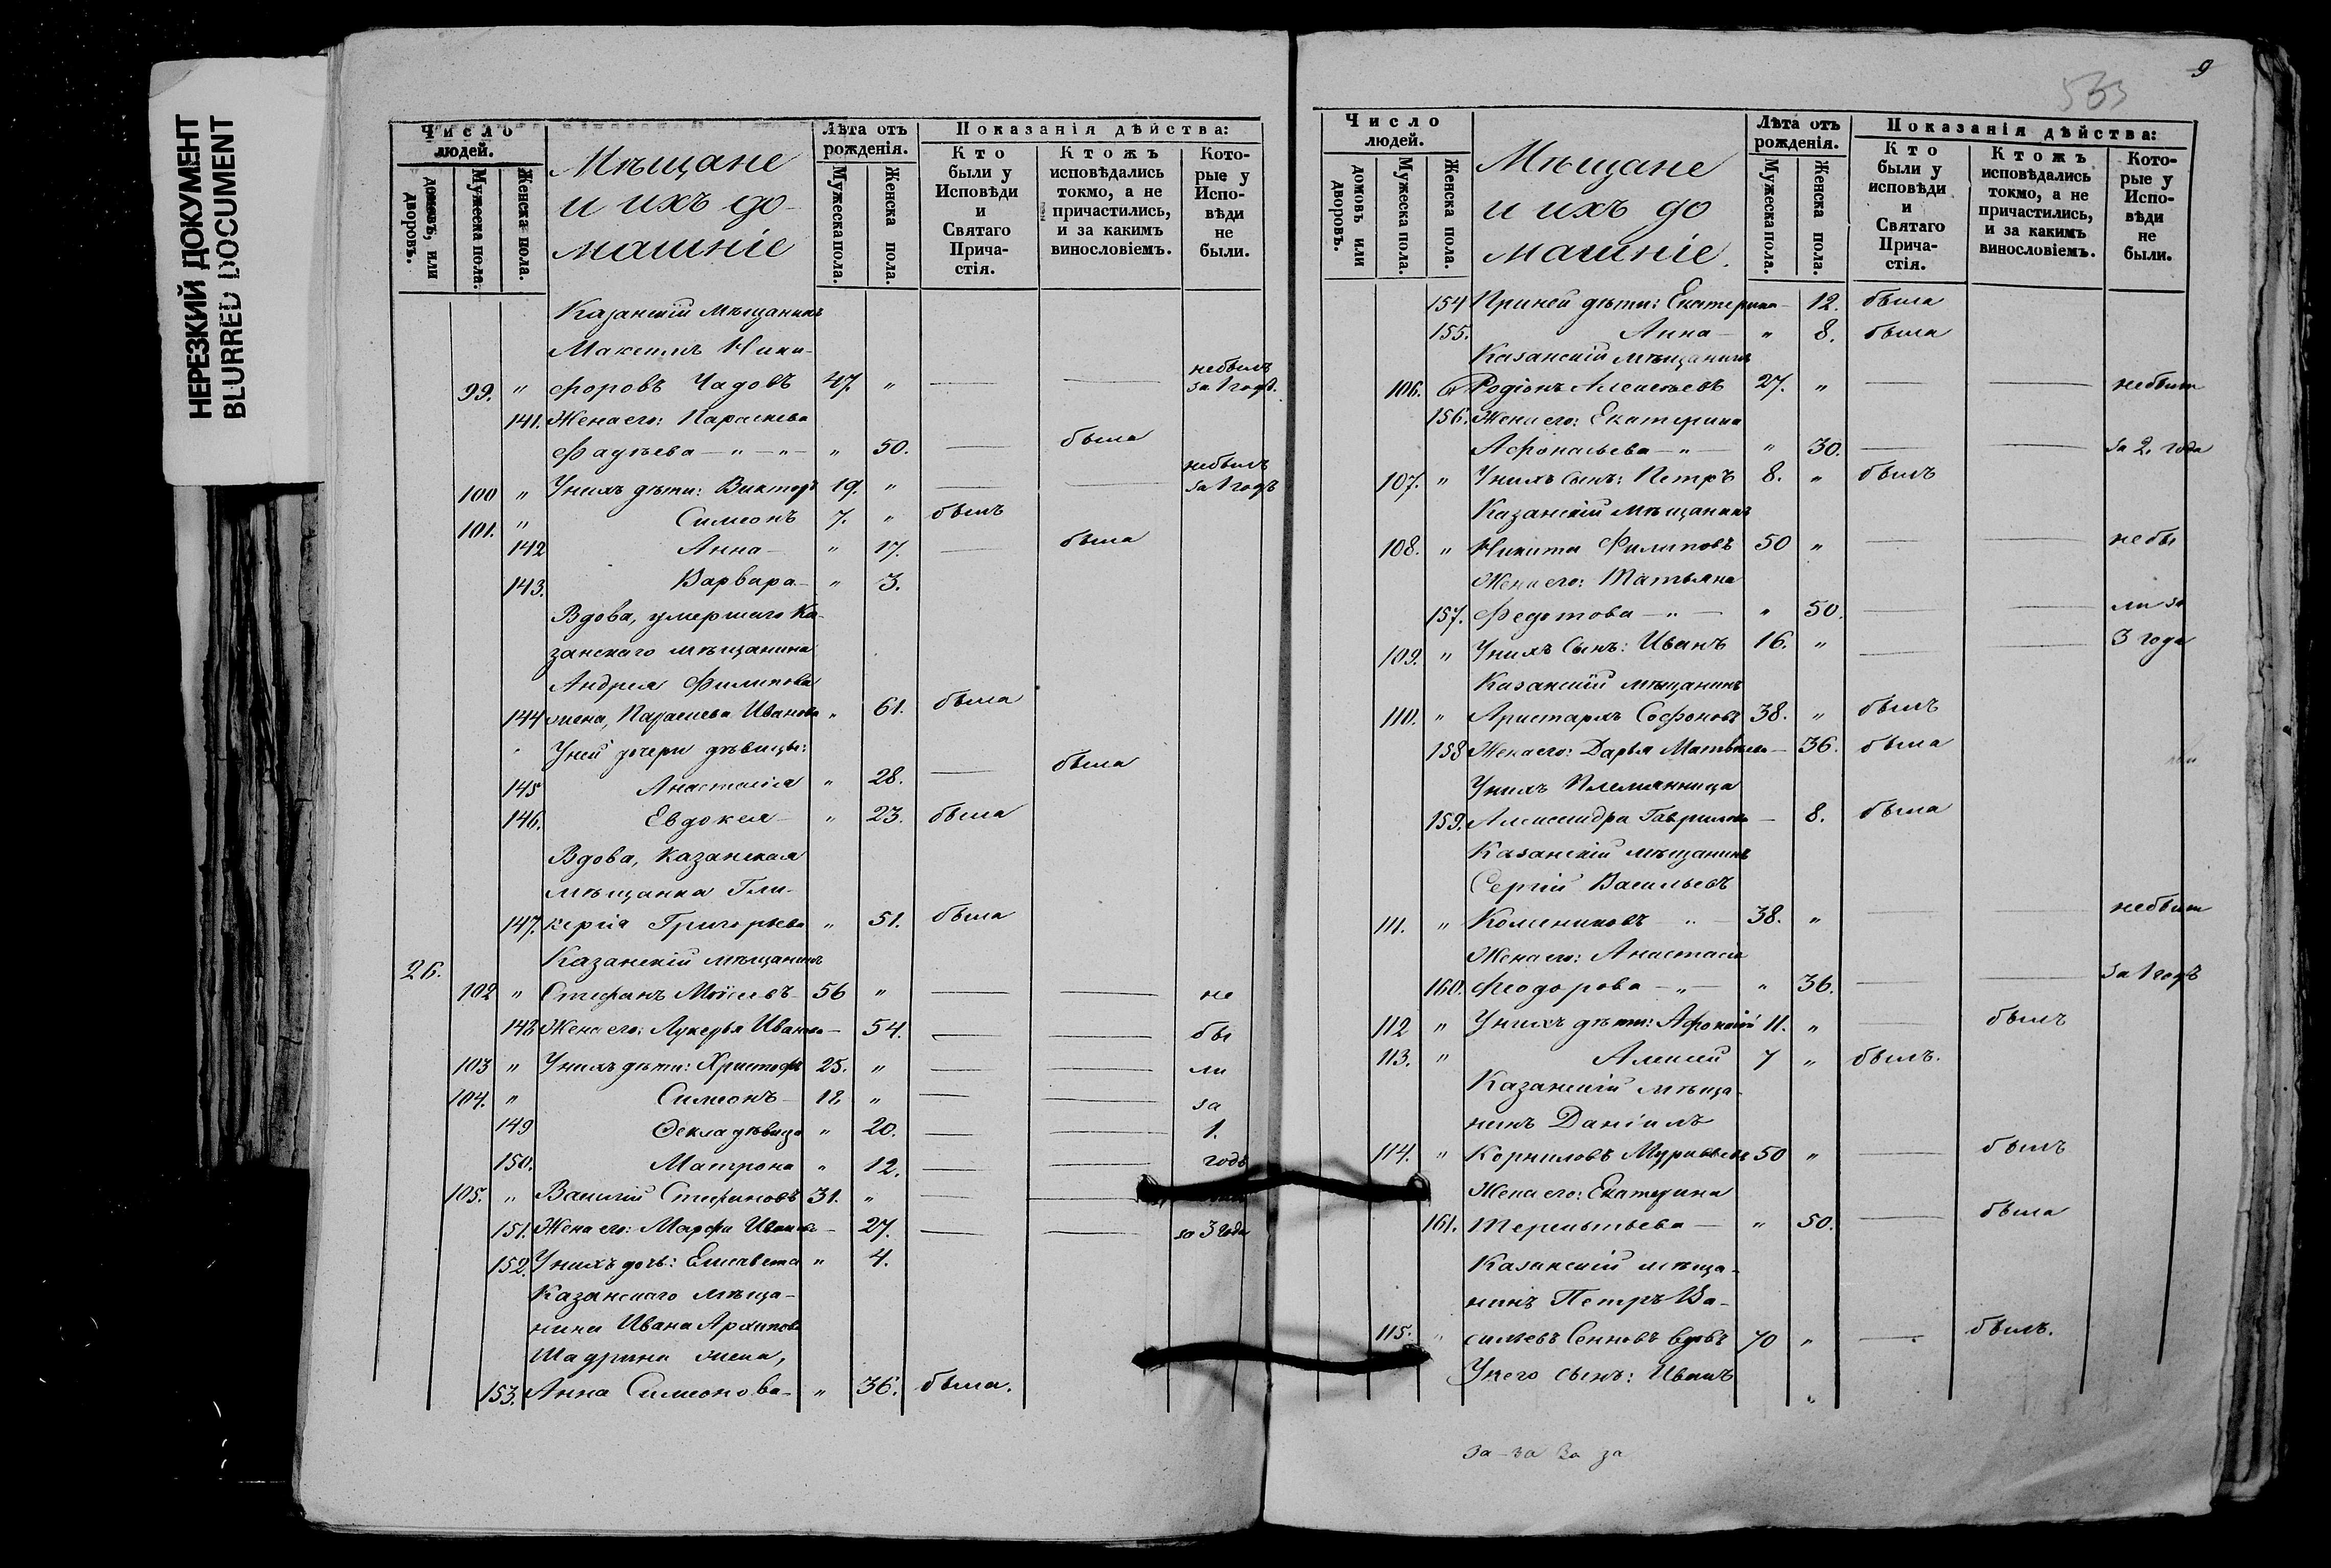 НЕРЕЗКИЙ ДОКУМЕНТ
BLURRED DOCUMENT
Число людей.
домовъ, или дворовъ.
Мужеска пола.
Женска пола.
Мѣщане
и ихъ до-
машніе
Лѣта отъ рожденія.
Мужеска пола.
Женска пола.
Показанія дѣйства:
Кто были у Исповѣди и Святаго Прича-стія.
Ктожъ исповѣдались токмо, а не причастились, и за какимъ винословіемъ.
Кото-рые у Испо-вѣди не были.
Казанскій мѣщанинъ
Максимъ Ники-
99. " форовъ Чадовъ 47. " — — небылъ за 1 годъ.
141. Жена его: Параскева
Фадѣева — " — " — " 50. — была
100 " У нихъ дѣти: Викторъ 19. " — — небылъ за 1 годъ
101. " Симеонъ 7. " былъ
142 Анна — " 17. — была
143. Варвара — " 3.
Вдова, умершаго Ка-
занскаго мѣщанина
Андрея Филипова
144 жена, Параскева Иванова " 61. была
У ней дочери дѣвицы:
145 Анастасія " 28. — была
146. Евдокея — " 23. была
Вдова, Казанская
мѣщанка Гли-
147. керія Григорьева " 51. была
26. Казанскій мѣщанинъ
102 " Стефанъ Моѵсеевъ — 56 " — — не
148 Жена его: Лукерья Иванова — 54. — — бы
103 " У нихъ дѣти: Христофъ 25. " — — ли
104. " Симеонъ — 18 " — — за
149 Ѳекла дѣвица " 20. — — 1.
150. Матрона " 12. — — годъ
105. " Василій Стефановъ 31. " — —
151. Жена его: Марфа Иванова — 27. — — за 3 года
152. У нихъ дочь: Елисавета " 4.
Казанскаго мѣща-
нина Ивана Архипова
Шадрина жена,
153. Анна Симеонова — " 36. была.
9
Число людей.
домовъ или дворовъ.
Мужеска пола.
Женска пола.
Мѣщане
и ихъ до
машніе.
Лѣта отъ рожденія.
Мужеска пола.
Женска пола.
Показанія дѣйства:
Кто были у исповѣди и Святаго Прича-стія.
Ктожъ исповѣдались токмо, а не причастились, и за какимъ винословіемъ.
Кото-рые у Испо-вѣди не были.
154 При ней дѣти: Екатерина — 12. была
155. Анна — " 8. была
Казанскій мѣщанинъ
106. " Родіонъ Алексѣевъ 27. " — — небыли
156. Жена его: Екатерина
Афонасьева — " — " 30. — — за 2. года
107. " У нихъ сынъ: Петръ 8. " былъ
Казанскій мѣщанинъ
108. " Никита Филиповъ 50 " — — небы
Жена его: Татьяна
157. Федотова — " — " 50. — — ли за
109. " У нихъ сынъ: Иванъ 16. " — — 3 года
Казанскій мѣщанинъ
110. " Аристархъ Софоновъ 38. " былъ
158 Жена его: Дарья Матвѣева — 36. была
У нихъ племянница
159. Александра Гаврилова — 8. была
Казанскій мѣщанинъ
Сергій Васильевъ
111. " Колесниковъ " — 38. " — — небыли
Жена его: Анастасія
160. Феодорова — " — " 36. — — за 1 годъ
112 " У нихъ дѣти: Афонасій 11. " — былъ
113. " Алексій 7 " былъ.
Казанскій мѣща-
нинъ Даніилъ
114. " Корниловъ Муравьевъ 50 " — былъ
Жена его: Екатерина
161. Терентьева — " 50. — была
Казанскій мѣща-
нинъ Петръ Ва-
115. " сильевъ Сенновъ вдовъ 70 " — былъ.
У него сынъ: Иванъ "
За-за За за